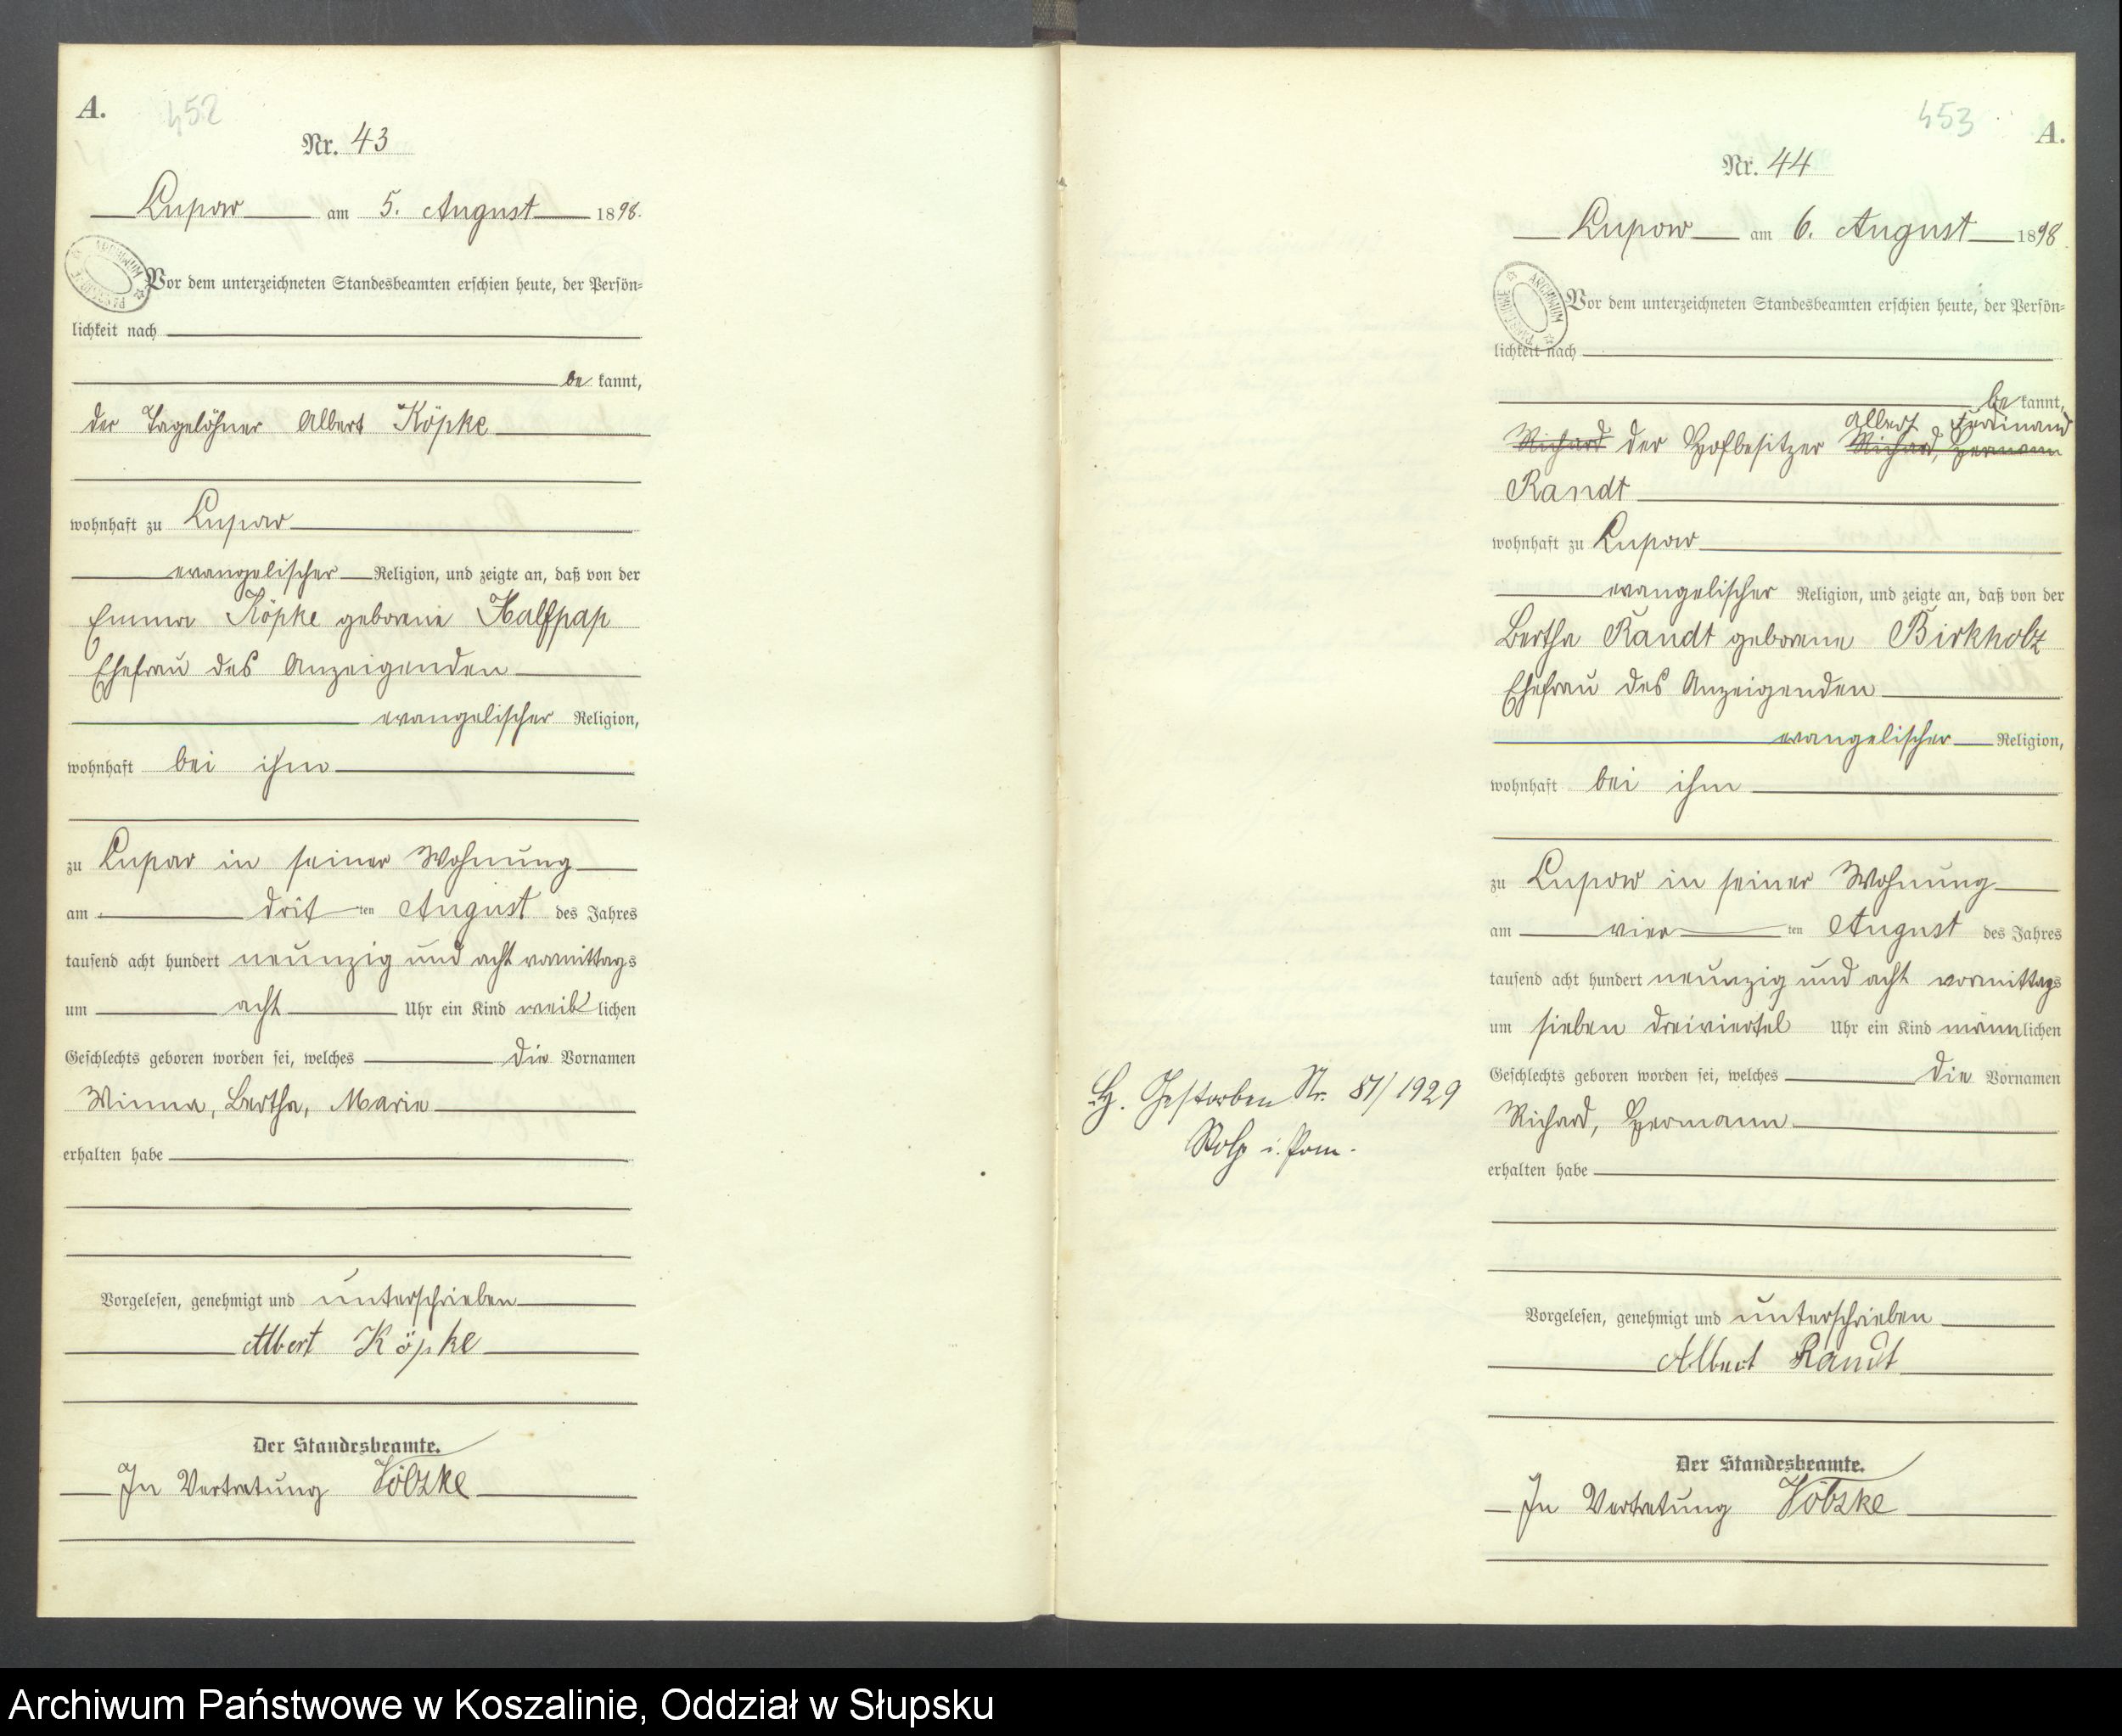 A.
452
Nr. 43
Lupow am 5. August 1898.
Vor dem unterzeichneten Standesbeamten erschien heute, der Persön=
lichkeit nach
be kannt,
der Tagelöhner Albert Köpke
wohnhaft zu Lupow
evangelischer Religion, und zeigte an, daß von der
Emma Köpke geborene Halfpap
Ehefrau des Anzeigenden
evangelischer Religion,
wohnhaft bei ihm
zu Lupow in seiner Wohnung
am drit ten August des Jahres
tausend acht hundert neunzig und acht vormittags
um acht Uhr ein Kind weib lichen
Geschlechts geboren worden sei, welches die Vornamen
Minna, Bertha, Marie
erhalten habe
Vorgelesen, genehmigt und unterschrieben
Albert Köpke
Der Standesbeamte.
In Vertretung Völzke
453
A.
Nr. 44
Lupow am 6. August 1898
ARCHIWUM
Vor dem unterzeichneten Standesbeamten erschien heute, der Persön=
lichkeit nach
be kannt,
Albert Ferdinand
Richard der Hofbesitzer Richard, Hermann
Randt
wohnhaft zu Lupow
evangelischer Religion, und zeigte an, daß von der
Bertha Randt geborene Birkholz
Ehefrau des Anzeigenden
evangelischer Religion,
wohnhaft bei ihm
zu Lupow in seiner Wohnung
am vier ten August des Jahres
tausend acht hundert neunzig und acht vormittags
um sieben dreiviertel Uhr ein Kind männlichen
Geschlechts geboren worden sei, welches die Vornamen
Richard, Hermann
erhalten habe
Vorgelesen, genehmigt und unterschrieben
Albert Randt
Der Standesbeamte.
In Vertretung Völzke
H. Gestorben Nr. 81/1929
Stolp i. Pom.
Archiwum Państwowe w Koszalinie, Oddział w Słupsku